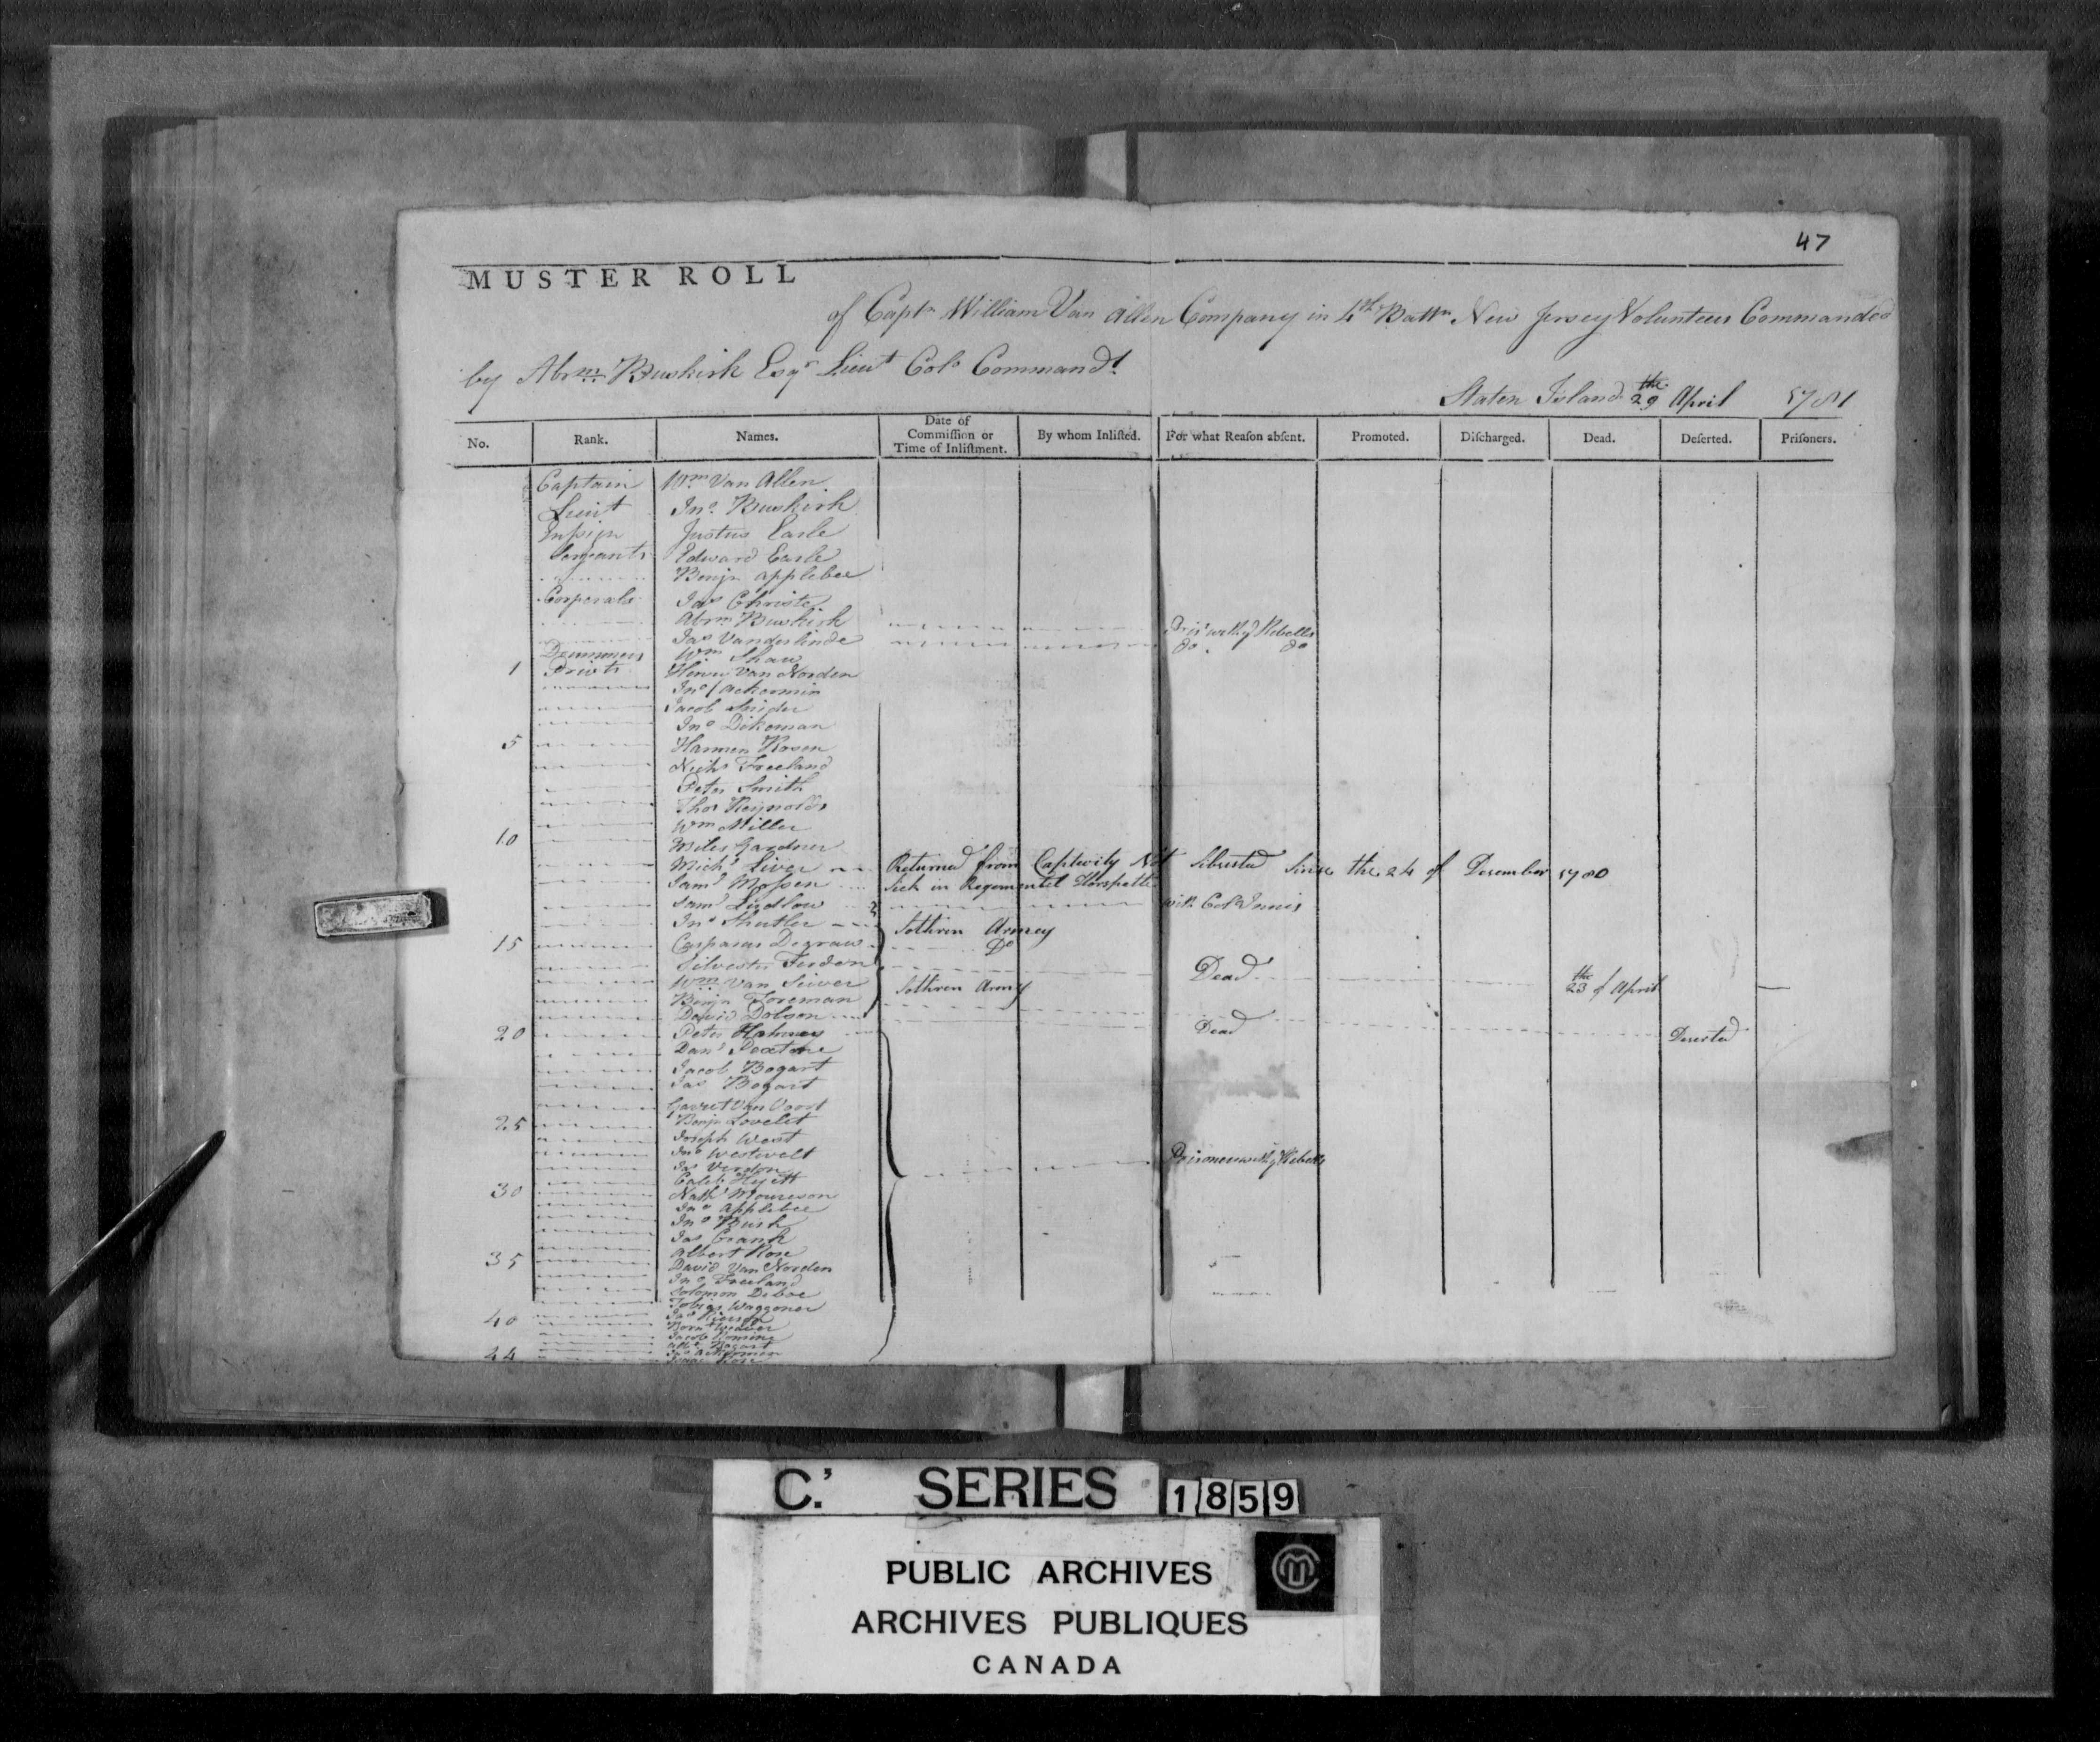 47
MUSTER ROLL
of Captn William Van Allen Company in 4th Battn New Jersey Volunteers Commanded
by Abrm Buskirk Esqr Lieut Colo Commandt
Staten Island 29 the April 1781
No. Rank. Names. Date of Commiſſion or Time of Inliſtment. By whom Inliſted. For what Reaſon abſent. Promoted. Diſcharged. Dead. Deſerted. Priſoners.
Captain Wm Van Allen
Lieut Jno Buskirk
Ensign Justus Earle
Sergeants Edward Earle
Benjn Applebee
Corporals Jas Christe
Abrm Buskirk Prisr with ye Rebells
Jas Vanderlinde do do
Drummers Wm Shaw
1 Privts Henry Van Norden
Jno Ackermin
Jacob Snider
Jno Dikeman
5 Harmen Rosen
Nichs Freeland
Peter Smith
Thos Reynolds
Wm Miller
10 Miles Gardner
Michl Liver Returned from Captivity Not Subsisted Since the 24 of Desember 1780
Saml Mossen Sick in Regemental Horspattle
Saml Ludlow with Col Innis
Jno Shutler Sothren Armey
15 Casparus Degraw Do
Silvester Ferdon Dead 23 the of April
Wm Van Siver Sothren Army
Benjn Foreman
David Dobson Dead
20 Peter Hahmey Deserted
Danl Pextone
Jacob Bogart
Jas Bogart
Garret Van Voort
25 Benjn Lovelet
Joseph West
Jno Westvelt
Jas Verdon Prisoner with ye Rebells
Caleb Hyett
30 Nathl Moureson
Jno Applebee
Jno Bush
Jas Crank
Albert Rose
35 David Van Norden
Jno Freeland
Solomon Deboe
Tobias Waggoner
40
Jacob Romine
Bogart
44 Ackerman
C.' SERIES 1859
PUBLIC ARCHIVES
ARCHIVES PUBLIQUES
CANADA